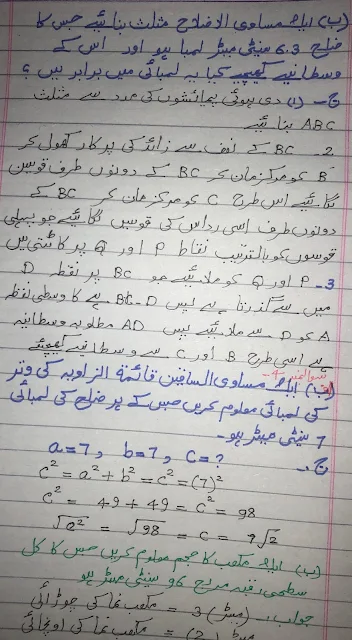 (ب) ایک مساوی الاضلاع مثلث بنائیے جس کا
ضلع 6.3 سینٹی میٹر لمبا ہو اور اس کے
وسطانیے کھینچیے کیا یہ لمبائی میں برابر ہیں؟
ج- (1) دی ہوئی پیمائشوں کی مدد سے مثلث
ABC بنائیے
2- BC کے نصف سے زائد کی پرکار کھول کر
B کو مرکز مان کر BC کے دونوں طرف قوسین
لگائیے اس طرح C کو مرکز مان کر BC کے
دونوں طرف اسی رداس کی قوسیں لگائیے جو پہلی
قوسوں کو بالترتیب نقاط P اور Q پر کاٹتی ہیں
3- P اور Q کو ملائیے جو BC پر نقطہ D
میں سے گذرتا ہے پس BC - D کا وسطی نقطہ ہے
A کو D سے ملائیے پس AD مطلوبہ وسطانیہ
ہے اسی طرح B اور C سے وسطانیے کھینچئے
سوال نمبر 4-
(الف) ایک مساوی الساقین قائمۃ الزاویہ کی وتر
کی لمبائی معلوم کریں جس کے ہر ضلع کی لمبائی
7 سینٹی میٹر ہو-
ج-
a=7, b=7, c=?
c² = a² + b² = c² = (7)²
c² = 49 + 49 = c² = 98
√a² = √98 = c = 7√2
(ب) ایک مکعب کا حجم معلوم کریں جس کا کل
سطحی رقبہ مربع سینٹی میٹر ہو
جواب :- (میٹر) 3 = مکعب نما کی چوڑائی
= مکعب نما کی اونچائی